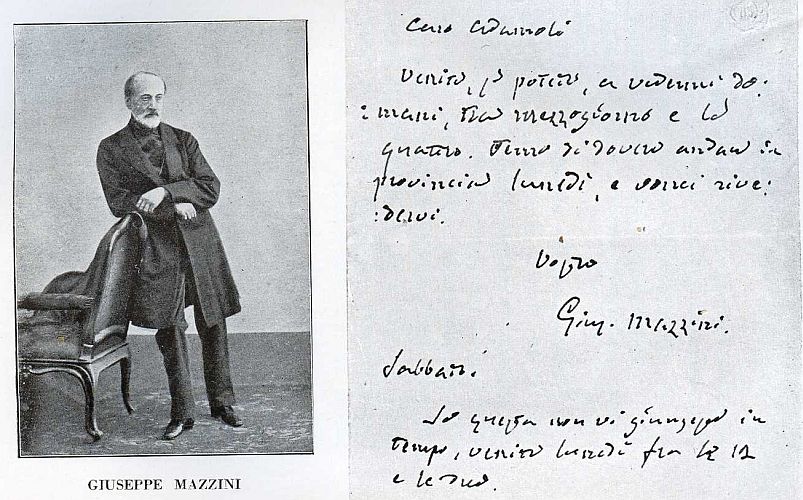 GIUSEPPE MAZZINI
Caro
Venite, se potete, a vedermi do:
:mani, tra mezzogiorno e le
quattro. Temo di dover andare in
provincia lunedì, e vorrei rive:
:dervi.
Vostro
Gius. Mazzini.
Sabbato.
Se questa non vi giungesse in
tempo, venite lunedì fra le 12
e le due.